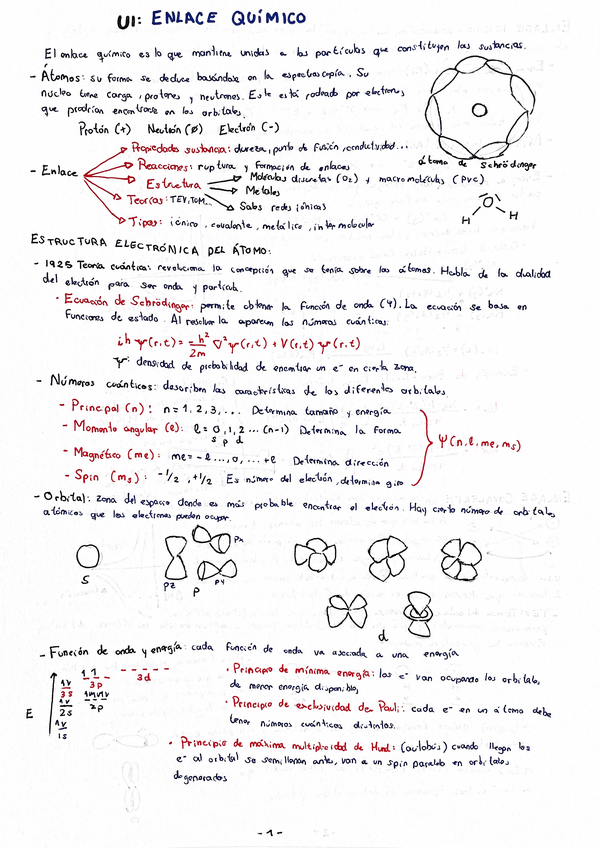 UI: ENLACE QUÍMICO
El enlace químico es lo que mantiene unidas a las partículas que constituyen las sustancias.
- Átomos: su forma se deduce basándose en la espectroscopía. Su
núcleo tiene carga, protones y neutrones. Este está rodeado por electrones
que prodrían encontrarse en los orbitales.
Protón (+) Neutrón (ø) Electrón (-)
átomo de Schrödinger
- Enlace
Propiedades sustancia: dureza, punto de fusión, conductividad...
Reacciones: ruptura y formación de enlaces
Estructura
Moléculas discretas (O2) y macromoléculas (PVC)
Metales
Sales redes iónicas
Teorías: TEV, TOM...
Tipos: iónico, covalente, metálico, intermolecular
O
H H
ESTRUCTURA ELECTRÓNICA DEL ÁTOMO:
- 1925 Teoría cuántica: revoluciona la concepción que se tenía sobre los átomos. Habla de la dualidad
del electrón para ser onda y partícula.
• Ecuación de Schrödinger: permite obtener la función de onda (Ψ). La ecuación se basa en
Funciones de estado. Al resolverla aparecen los números cuánticos:
iħ Ψ(r,t) = -ħ²/2m ∇² Ψ(r,t) + V(r,t) Ψ(r,t)
Ψ: densidad de probabilidad de encontrar un e⁻ en cierta zona.
- Números cuánticos: describen las características de los diferentes orbitales.
- Principal (n): n = 1, 2, 3, ... Determina tamaño y energía
- Momento angular (ℓ): ℓ = 0, 1, 2 ... (n-1) Determina la forma
s p d
- Magnético (me): me = -ℓ ..., 0, ... +ℓ Determina dirección
- Spin (ms): -1/2, +1/2 Es número del electrón, determina giro
Ψ (n, ℓ, me, ms)
- Orbital: zona del espacio donde es más probable encontrar el electrón. Hay cierto número de orbitales
atómicos que los electrones pueden ocupar.
s
pz
px
py
p
d
- Función de onda y energía: cada función de onda va asociada a una energía
E
1s
2s
2p
3s
3p
3d
• Principio de mínima energía: los e⁻ van ocupando los orbitales
de menor energía disponibles
• Principio de exclusividad de Pauli: cada e⁻ en un átomo debe
tener números cuánticos distintos.
• Principio de máxima multiplicidad de Hund: (autobús) cuando llegan los
e⁻ al orbital se semillenan antes, van a un spin paralelo en orbitales
degenerados
-1-